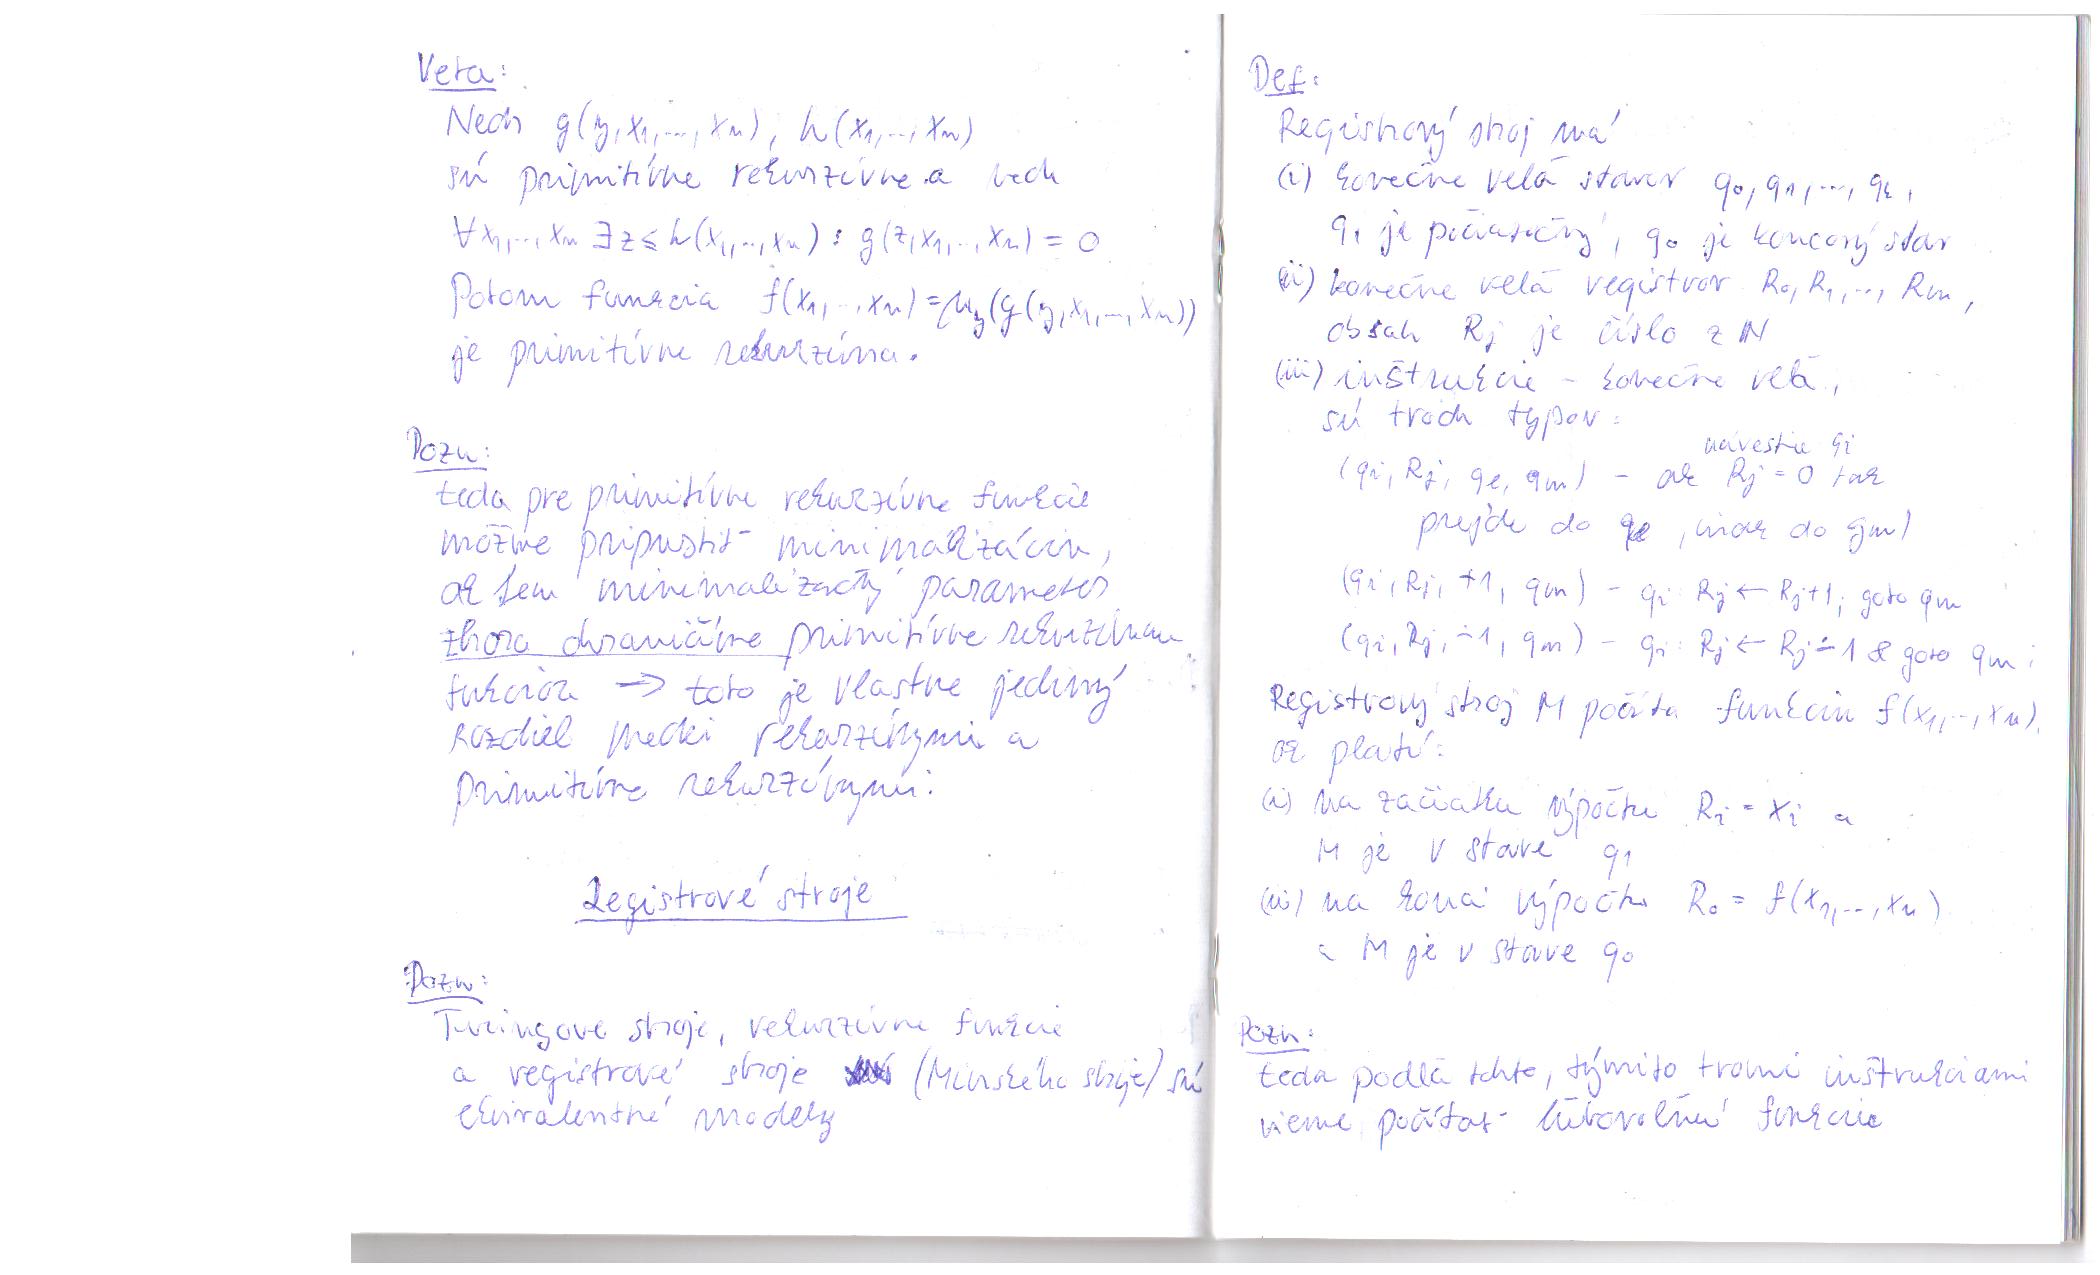 Veta:
Nech g(y,x₁,...,xₙ), h(x₁,...,xₙ)
sú primitívne rekurzívne a nech
∀x₁,...,xₙ ∃z≤h(x₁,...,xₙ) : g(z,x₁,...,xₙ) = 0
Potom funkcia f(x₁,...,xₙ) = μy(g(y,x₁,...,xₙ))
je primitívne rekurzívna.
Pozn:
teda pre primitívne rekurzívne funkcie
môžme pripustiť minimalizáciu,
ak len minimalizačný parameter
zhora ohraničíme primitívne rekurzívnou
funkciou → toto je vlastne jediný
rozdiel medzi rekurzívnymi a
primitívne rekurzívnymi.
Registrové stroje
Pozn:
Turingove stroje, rekurzívne funkcie
a registrové stroje (Minského stroje) sú
ekvivalentné modely
Def:
Registrový stroj má
(i) konečne veľa stavov q₀, q₁, ..., qₖ,
q₁ je počiatočný, q₀ je koncový stav
(ii) konečne veľa registrov R₀, R₁, ..., Rₘ,
obsah Rⱼ je číslo z N
(iii) inštrukcie - konečne veľa,
sú troch typov:
návestie qᵢ
(qᵢ, Rⱼ, qₗ, qₘ) - ak Rⱼ = 0 tak
prejde do qₗ, inak do qₘ)
(qᵢ, Rⱼ, +1, qₘ) - qᵢ: Rⱼ ← Rⱼ+1; goto qₘ
(qᵢ, Rⱼ, ∸1, qₘ) - qᵢ: Rⱼ ← Rⱼ∸1 & goto qₘ;
Registrový stroj M počíta funkciu f(x₁,...,xₙ),
ak platí:
(i) na začiatku výpočtu Rᵢ = xᵢ a
M je v stave q₁
(ii) na konci výpočtu R₀ = f(x₁,...,xₙ)
a M je v stave q₀
Pozn:
teda podľa tohto, týmito tromi inštrukciami
vieme počítať ľubovoľnú funkciu